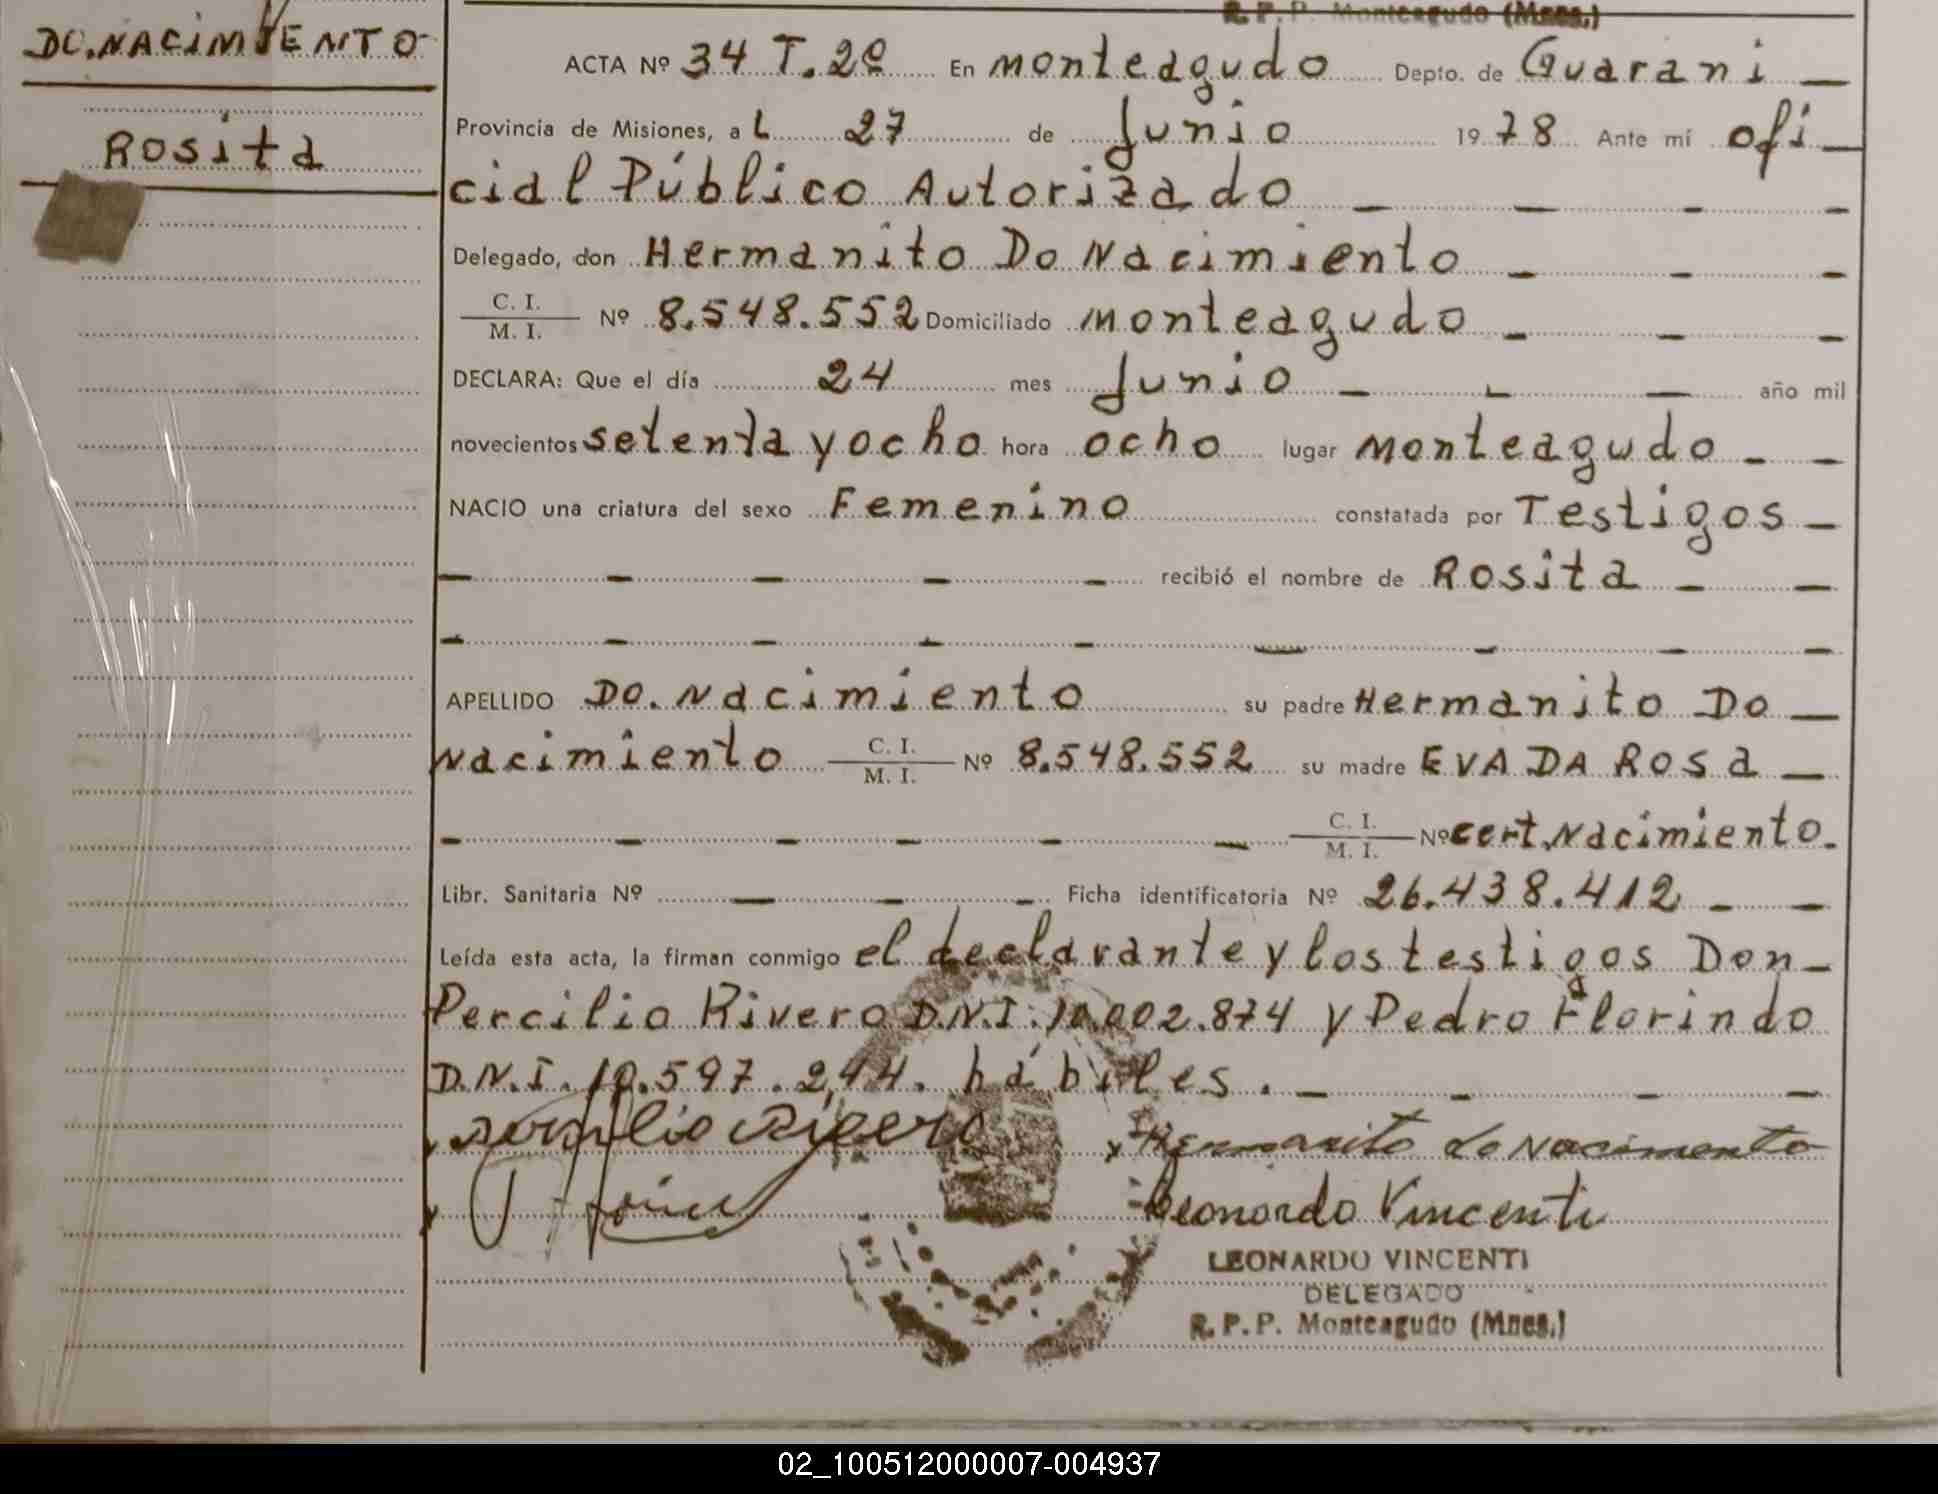 R. P. P. Monteagudo (Mnes.)
DO.NACIMIENTO
Rosita
ACTA Nº 34 T.2º En Monteagudo Depto. de Guarani —
Provincia de Misiones, a L 27 de Junio 1978 Ante mí ofi—
cial Público Autorizado — — — —
Delegado, don Hermanito Do Nacimiento — — —
C. I. / M. I. Nº 8.548.552 Domiciliado Monteagudo — — —
DECLARA: Que el día 24 mes Junio — — — año mil
novecientos setenta y ocho hora ocho lugar Monteagudo — —
NACIO una criatura del sexo Femenino constatada por Testigos —
— — — — — recibió el nombre de Rosita — —
— — — — — — — — —
APELLIDO Do.Nacimiento su padre Hermanito Do —
Nacimiento C. I. / M. I. Nº 8.548.552 su madre EVA DA ROSA —
— — — — — — C. I. / M. I. Nº cert.Nacimiento.
Libr. Sanitaria Nº — — — Ficha identificatoria Nº 26.438.412 — —
Leída esta acta, la firman conmigo el declarante y los testigos Don—
Percilio Rivero D.N.I. 10.002.874 y Pedro Florindo
D.N.I. 10.597.244. hábiles. — — — —
x Percilio Rivero x Hermanito do Nacimento
x Leonardo Vincenti
LEONARDO VINCENTI
DELEGADO
R. P. P. Monteagudo (Mnes.)
02_100512000007-004937